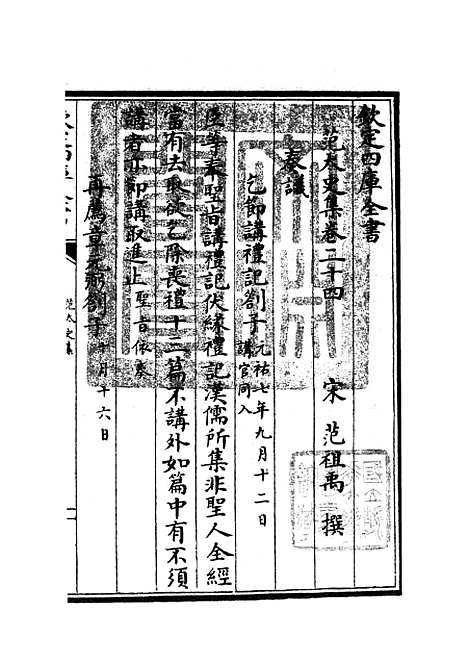 欽定四庫全書
范太史集卷二十四
宋 范祖禹 撰
奏議
乞節講禮記劄子元祐七年九月十二日講官同入
臣等奉聖旨講禮記伏緣禮記漢儒所集非聖人全經
當有去取欲乞除喪禮十三篇不講外如篇中有不須
講者亦節講取進止聖旨依奏
再薦章元弼劄子十月十六日
范太史集